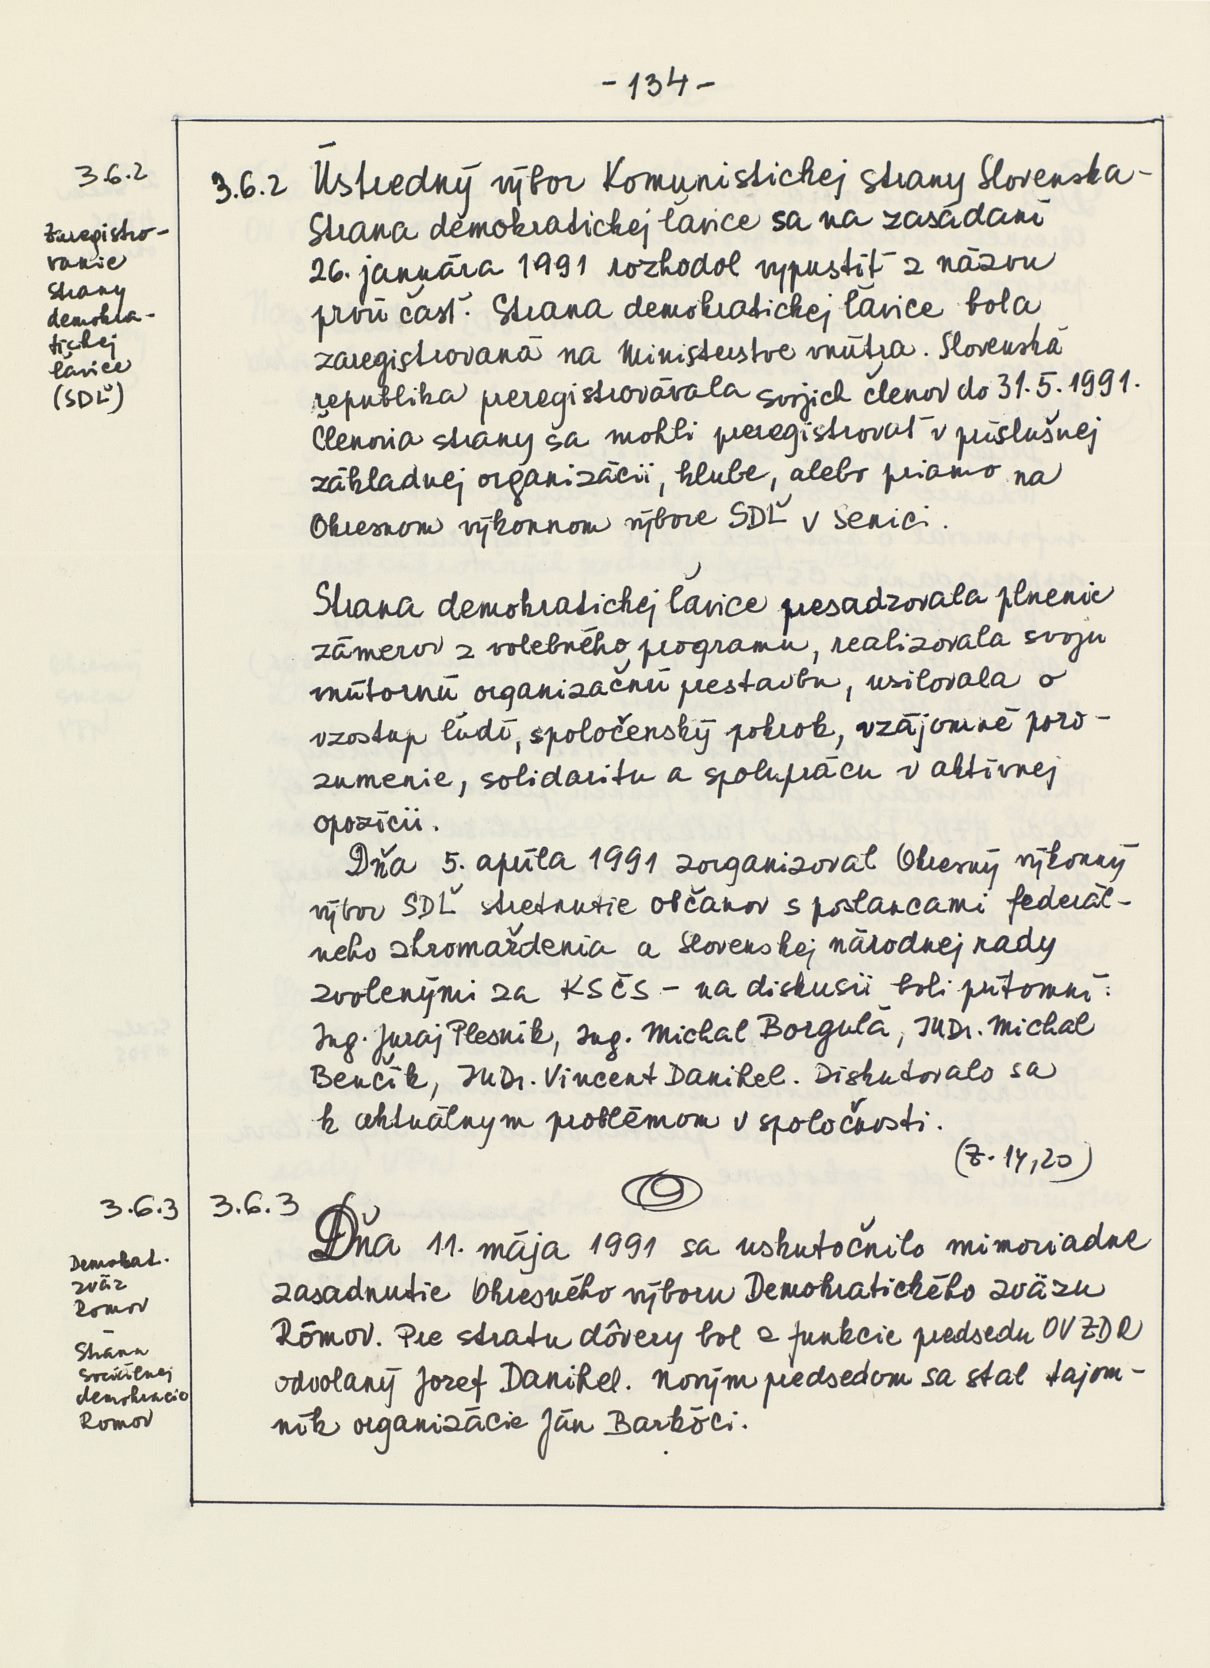 - 134 -
3.6.2
Zaregistro-
vanie
Strany
demokra-
tickej
ľavice
(SDĽ)
3.6.2 Ústredný výbor Komunistickej strany Slovenska -
Strana demokratickej ľavice sa na zasadaní
26. januára 1991 rozhodol vypustiť z názvu
prvú časť. Strana demokratickej ľavice bola
zaregistrovaná na Ministerstve vnútra. Slovenská
republika preregistrovávala svojich členov do 31.5.1991.
Členovia strany sa mohli preregistrovať v príslušnej
základnej organizácii, klube, alebo priamo na
Okresnom výkonnom výbore SDĽ v Senici.
Strana demokratickej ľavice presadzovala plnenie
zámerov z volebného programu, realizovala svoju
vnútornú organizačnú prestavbu, usilovala o
vzostup ľudí, spoločenský pokrok, vzájomné poro-
zumenie, solidaritu a spoluprácu v aktívnej
opozícii.
Dňa 5. apríla 1991 zorganizoval Okresný výkonný
výbor SDĽ stretnutie občanov s poslancami federál-
neho zhromaždenia a Slovenskej národnej rady
zvolenými za KSČS - na diskusii boli prítomní:
Ing. Juraj Plesník, Ing. Michal Borguľá, JUDr. Michal
Benčík, JUDr. Vincent Danihel. Diskutovalo sa
k aktuálnym problémom v spoločnosti.
(Z. 14,20)
3.6.3
Demokrat.
zväz
Rómov
Strana
sociálnej
demokracie
Romov
3.6.3
Dňa 11. mája 1991 sa uskutočnilo mimoriadne
zasadnutie Okresného výboru Demokratického zväzu
Rómov. Pre stratu dôvery bol z funkcie predsedu OV ZDR
odvolaný Jozef Danihel. Novým predsedom sa stal tajom-
ník organizácie Ján Barkóci.